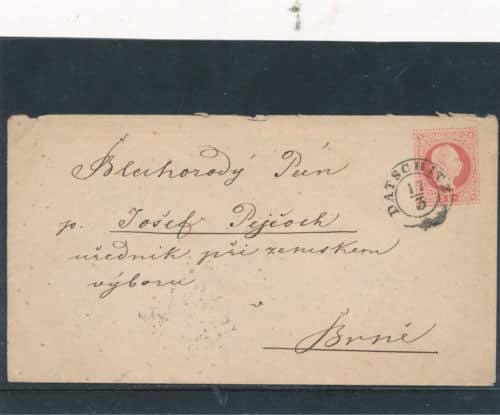 Blahorodý Pán
p. Josef Pejčoch
uředník při zemskem
výboru
v
Brně
DATSCHITZ
11/3